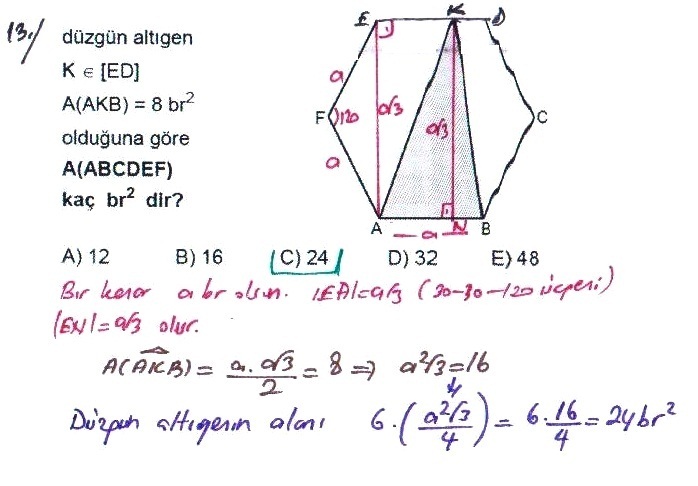 13./ düzgün altıgen
K ∈ [ED]
A(AKB) = 8 br²
olduğuna göre
A(ABCDEF)
kaç br² dir?
E K D
a a√3 a√3
F 120 C
a
A N B
a
A) 12 B) 16 C) 24 D) 32 E) 48
Bir kenar a br olsun. |EA|=a√3 (30-30-120 üçgeni)
|EN|=a√3 olur.
A(AKB) = a.a√3/2 = 8 ⇒ a²√3=16
Düzgün altıgenin alanı 6.(a²√3/4) = 6.16/4 = 24br²